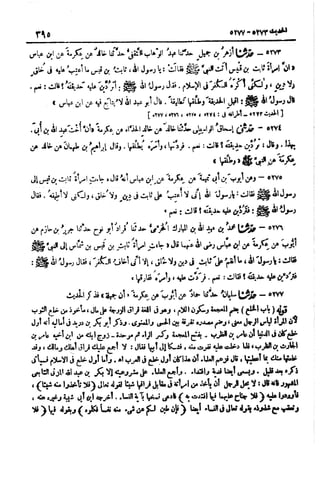 الحديث ٥٢٧٣ - ٥٢٧٧ ٣٩٥
٥٢٧٣ - حدثنا أزهر بن جميل حدثنا عبد الوهاب الثقفي حدثنا خالد عن عكرمة عن ابن عباس
« أن امرأة ثابت بن قيس أتت النبي ﷺ فقالت : يا رسول الله ، ثابت بن قيس ما أعتب عليه في خلق
ولا دين ، ولكني أكره الكفر في الإسلام . فقال رسول الله ﷺ : أتردين عليه حديقته ؟ قالت : نعم .
قال رسول الله ﷺ : اقبل الحديقة وطلقها تطليقة . قال أبو عبد الله لا يتابع فيه عن ابن عباس »
[ الحديث ٥٢٧٣ - أطرافه في : ٥٢٧٤ ، ٥٢٧٥ ، ٥٢٧٦ ، ٥٢٧٧ ]
٥٢٧٤ - حدثنا إسحاق الواسطي حدثنا خالد عن خالد الحذاء عن عكرمة « أن أخت عبد الله بن أبي
بهذا . وقال : تردين حديقته ؟ قالت : نعم . فردتها ، وأمره يطلقها . وقال إبراهيم بن طهمان عن خالد عن
عكرمة عن النبي ﷺ « وطلقها »
٥٢٧٥ - وعن أيوب بن أبي تميمة عن عكرمة عن ابن عباس أنه قال « جاءت امرأة ثابت بن قيس إلى
رسول الله ﷺ فقالت : يا رسول الله إني لا أعتب على ثابت في دين ولا خلق ، ولكني لا أطيقه . فقال
رسول الله ﷺ : فتردين عليه حديقته ؟ قالت : نعم »
٥٢٧٦ - حدثنا محمد بن عبد الله بن المبارك المخرمي حدثنا قراد أبو نوح حدثنا جرير بن حازم عن
أيوب عن عكرمة عن ابن عباس رضي الله عنهما قال « جاءت امرأة ثابت بن قيس بن شماس إلى النبي ﷺ
فقالت : يا رسول الله ، ما أنقم على ثابت في دين ولا خلق ، إلا أني أخاف الكفر ، فقال رسول الله ﷺ :
فتردين عليه حديقته ؟ قالت : نعم . فردت عليه ، وأمره ففارقها »
٥٢٧٧ - حدثنا سليمان حدثنا حماد عن أيوب عن عكرمة « أن جميلة » فذكر الحديث
قوله ( باب الخلع ) بضم المعجمة وسكون اللام ، وهو في اللغة فراق الزوجة على مال ، مأخوذ من خلع الثوب
لأن المرأة لباس الرجل معنى ، وضم مصدره تفرقة بين الحسي والمعنوي . وذكر أبو بكر بن دريد في أماليه أنه أول
خلع كان في الدنيا أن عامر بن الظرب - بفتح المعجمة وكسر الراء ثم موحدة - زوج ابنته من ابن أخيه عامر بن
الحارث بن الظرب ، فلما دخلت عليه نفرت منه ، فشكا إلى أبيها فقال : لا أجمع عليك فراق أهلك ومالك ، وقد
خلعتها منك بما أعطيتها ، قال فزعم العلماء أن هذا كان أول خلع في العرب اه . وأما أول خلع في الإسلام فسيأتي
ذكره بعد قليل . ويسمى أيضا فدية وافتداء . وأجمع العلماء على مشروعيته إلا بكر بن عبد الله المزني التابعي
المشهور فإنه قال : لا يحل للرجل أن يأخذ من امرأته في مقابل فراقها شيئا لقوله تعالى ﴿ فلا تأخذوا منه شيئا ﴾ ،
فأوردوا عليه ﴿ فلا جناح عليهما فيما افتدت به ﴾ فادعى نسخها بآية النساء . أخرجه ابن أبي شيبة وغيره عنه ،
وتعقب مع شذوذه بقوله تعالى في النساء أيضا ﴿ فإن طبن لكم عن شيء منه نفسا فكلوه ﴾ وبقوله فيها ﴿ فلا